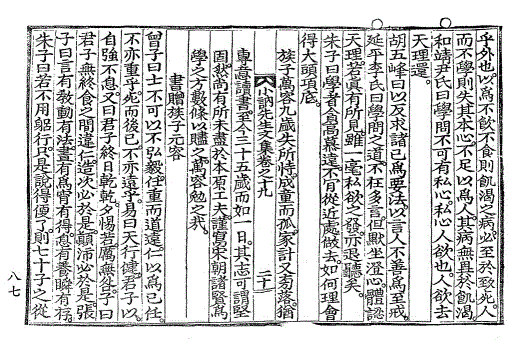 乎外也以爲不飮不食則飢渴之病必至於致死人
而不學則失其本心不足以爲人其病無異於飢渴
和靖尹氏曰學問不可有私心私心人欲也人欲去
天理還
胡五峰曰以反求諸己爲要法以言人不善爲至戒
延平李氏曰學問之道不在多言但默坐澄心體認
天理若眞有所見雖一毫私欲之發亦退聽矣
朱子曰學者貪高慕遠不肯從近處做去如何理會
得大頭項底
族子萬容九歲失所恃成童而孤家計又剝落猶
專意讀書至今三十五歲而如一日其志可謂堅
小訥先生文集卷之十九
二十
固然尙有所未盡於本原工夫謹寫宋朝諸賢爲
學之方數條以贐之萬容勉之哉
書贈族子元容
曾子曰士不可以不弘毅任重而道遠仁以爲己任
不亦重乎死而後已不亦遠乎易曰天行健君子以
自强不息又曰君子終日乾乾夕惕若厲無咎子曰
君子無終食之間違仁造次必於是顚沛必於是張
子曰言有敎動有法晝有爲宵有得息有養瞬有存
朱子曰若不用躬行只是說得便了則七十子之從
八七